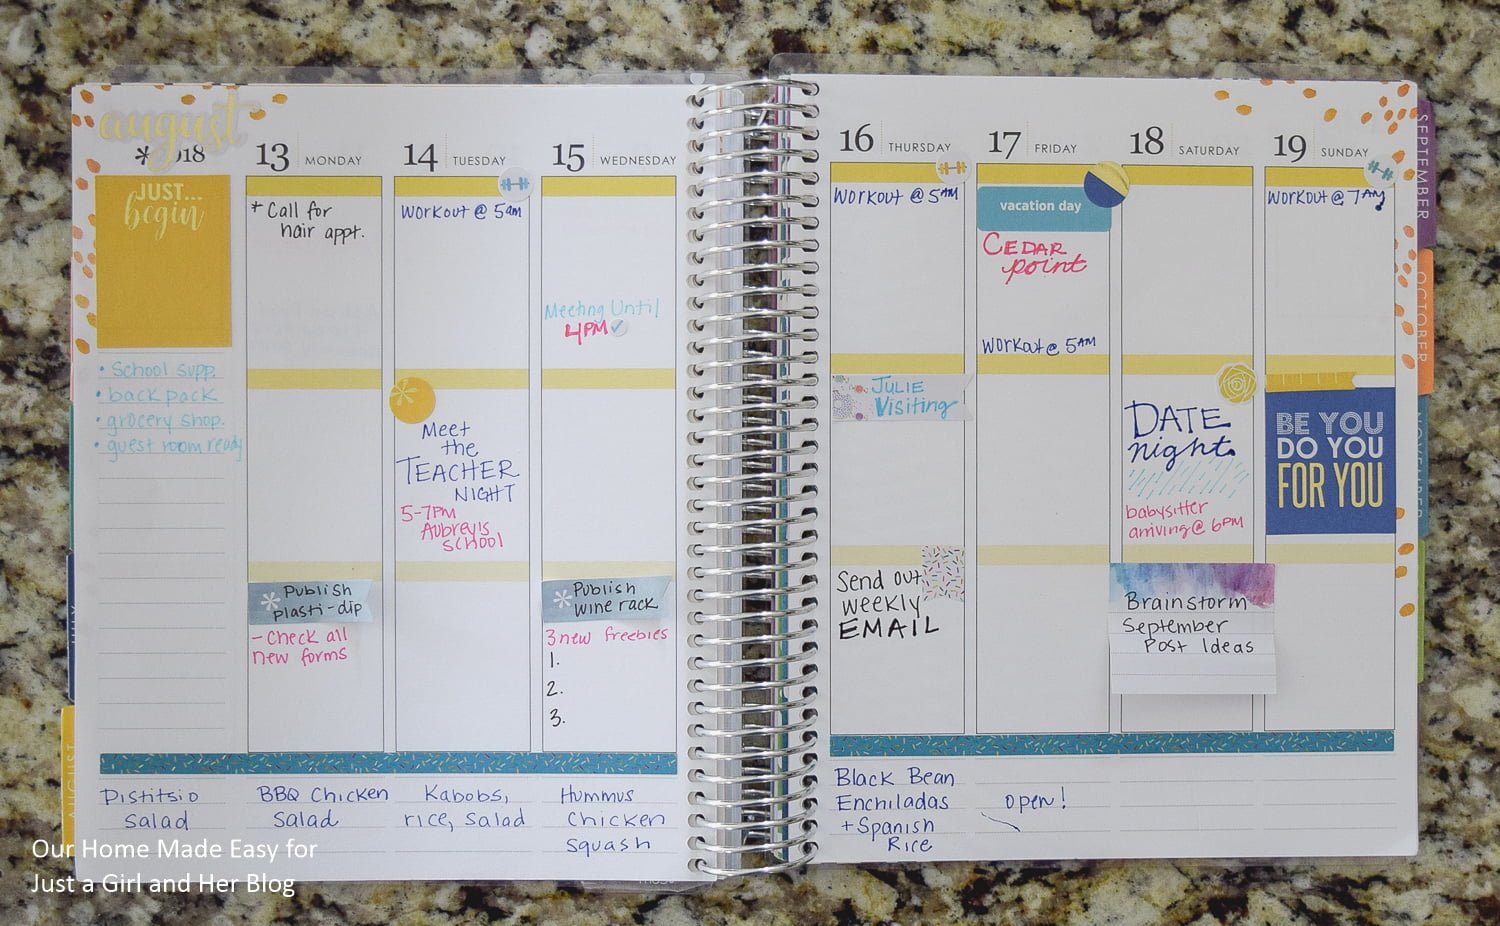 august
JUST...
begin
• School supp.
• back pack
• grocery shop.
• guest room ready
Distitsio
Salad
13 MONDAY
* Call for
hair appt.
Publish
plasti-dip
- Check all
new forms
BBQ Chicken
Salad
14 TUESDAY
Workout @ 5am
Meet
the
TEACHER
NIGHT
5-7PM
Aubrey's
School
Kabobs,
rice, salad
15 WEDNESDAY
Meeting Until
4PM
Publish
wine rack
3 new freebies
1.
2.
3.
Hummus
Chicken
Squash
16 THURSDAY
Workout @ 5AM
JULIE
Visiting
Send out
weekly
EMAIL
Black Bean
Enchiladas
+ Spanish
Rice
17 FRIDAY
vacation day
CEDAR
point
Workout @ 5AM
open!
18 SATURDAY
DATE
night.
babysitter
arriving @ 6PM
Brainstorm
September
Post Ideas
19 SUNDAY
Workout @ 7AM
BE YOU
DO YOU
FOR YOU
SEPTEMBER
OCTOBER
NOVEMBER
JULY
AUGUST
Our Home Made Easy for
Just a Girl and Her Blog